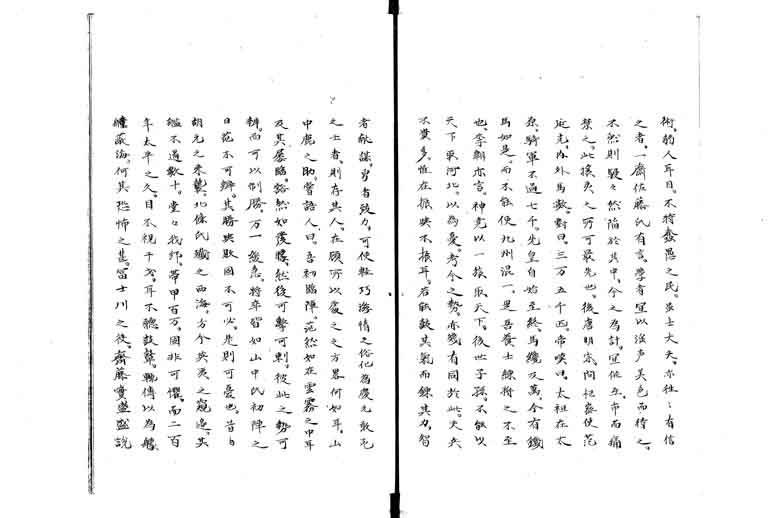 術。人耳目。不特蠢愚之民。虽士大夫。亦往々有信
之者。一齋佐藤氏有言。學者宜以淫声美色而待之。
不然則駸々然陷於其中。今之為計。宜使互市而痛
禁之。此夷之所可最先也。後唐明宗問枢密使范
延光。内外馬数。對曰。三万五千匹。帝嘆曰。太祖在太
原。騎軍不過七千。先皇自始至終。馬纔及萬。今有鐵
馬如是。而不能使九州混一。是吾養士練將之不至
也。李翱亦言。神堯以一旅取天下。後世子孫。不能以
天下取河北。以為憂。考今之勢。亦有同於此。夫兵
不貴多。惟在振與不振耳。若能鼓其氣而錬其力。智
者献謀。勇者致力。可使輕巧游惰之俗化為慶元敦厖
之士者。則存其人。在顧所以處之之方畧何如耳。山
中鹿之助。嘗語人曰。吾初臨陣。茫然如在雲霧之中耳
及其屡臨。豁然如覺。然後可擊可刺。彼此之勢可
辨。而可以制勝。万一緩急。將卒皆如山中氏初陣之
日茫不可辨。其勝與敗固不可必。是則可憂也。昔日
胡元之来襲。北條氏殲之西海。方今英夷之窺邊。其
艦不過數十。堂々我邦。帶甲百万。固非可懼。而二百
年太平之久。目不視干戈。耳不聽鼓鼙。輙傳以為艨
艟蔽海。何其恐怖之甚。冨士川之役。齋藤實盛盛説